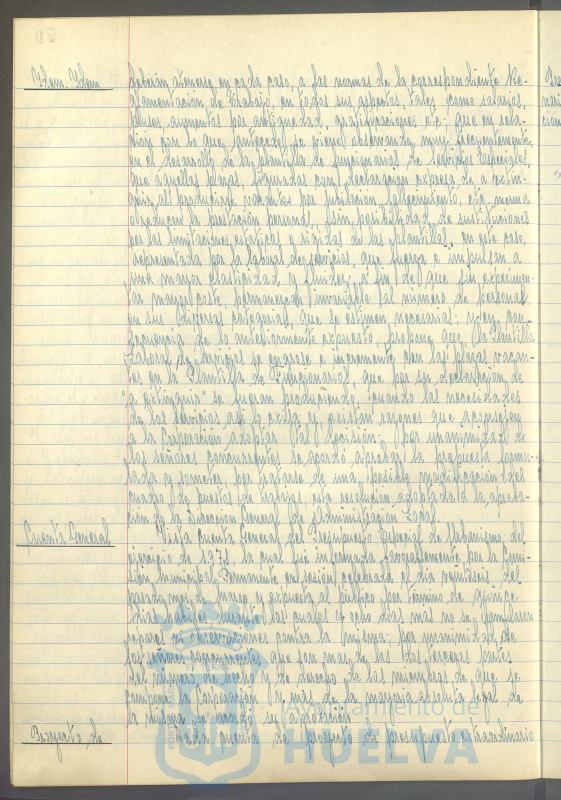 Idem. Idem
deberán atenerse, en cada caso, a las normas de la correspondiente Re-
glamentación de Trabajo, en todos sus aspectos, tales como salarios,
pluses, aumentos por antigüedad, gratificaciones etc; que en rela-
ción con lo que antecede, se viene observando, muy frecuentemente,
en el desarrollo de la plantilla de funcionarios de Servicios Especiales,
que aquellas plazas, figuradas con declaración expresa de a extin-
guir, al producirse vacantes por jubilación, fallecimiento, etc, merma
la prestación personal, sin posibilidad de sustituciones
por las limitaciones y rígidas de las plantillas, en este caso,
representada por la laboral de servicios, que fuerza e impulsan a
una mayor elasticidad y fluidez, a fin de que sin experimen-
tar mayor coste, permanezca invariable el número de personal
en sus diversas categorías, que se estimen necesarias; y en con-
secuencia de lo anteriormente expuesto, propone que, la Plantilla
Laboral de Servicios se engrose e incremente con las plazas vacan-
tes en la Plantilla de Funcionarios, que por su declaración de
"a extinguir" se fueran produciendo, cuando las necesidades
de los Servicios así lo exija y existan razones que aconsejen
a la Corporación adoptar tal decisión. Por unanimidad de
los señores concurrentes se acordó aprobar la propuesta formu-
lada y someter, por tratarse de una posible modificación del
cuadro de puestos de trabajos, esta resolución adoptada a la aproba-
ción de la Dirección General de Administración Local.
Cuenta General
Vista cuenta General del Presupuesto Especial de Urbanismo, del
ejercicio de 1.972, la cual fue informada favorablemente por la Comi-
sión Municipal Permanente en sesión celebrada el día del
pasado mes de marzo y expuesta al público por término de quince
días hábiles durante los cuales y ocho días más no se formularon
reparos ni observaciones contra la misma; por unanimidad de
los señores concurrentes que son más de las dos terceras partes
del número de hecho y de derecho de los miembros de que se
compone la Corporación y más de la mayoría absoluta legal de
la misma se acordó su aprobación.
Proyecto de
Dada cuenta de proyecto de presupuesto extraordinario
Ayuntamiento de
HUELVA